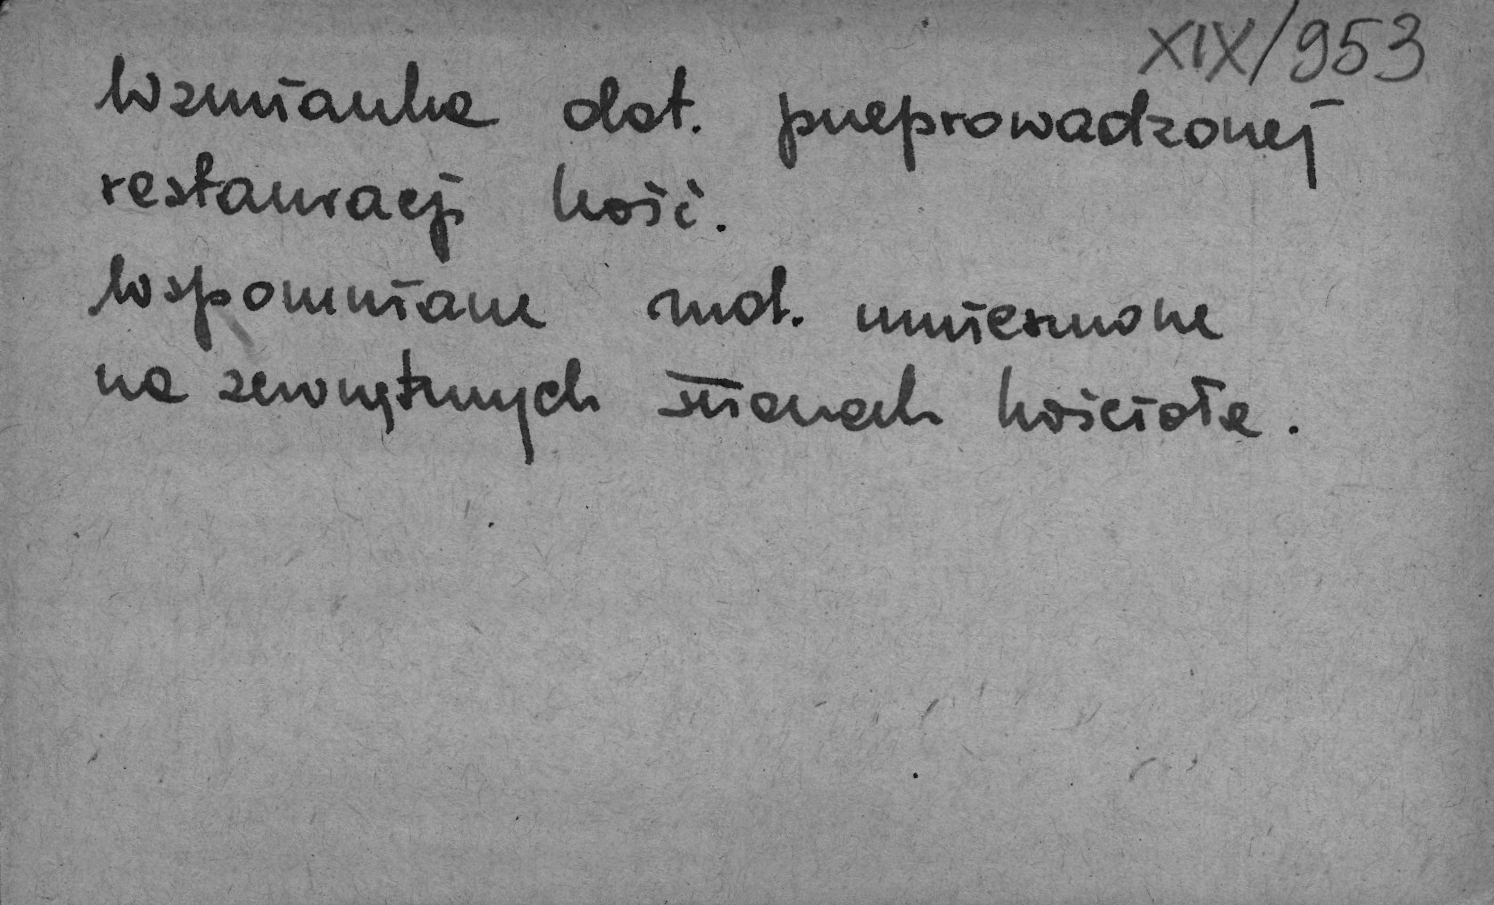 XIX/953
Wzmianka dot. przeprowadzonej
restauracji kość.
Wspomniane mal. umieszczone
na zewnętrznych ścianach kościoła.